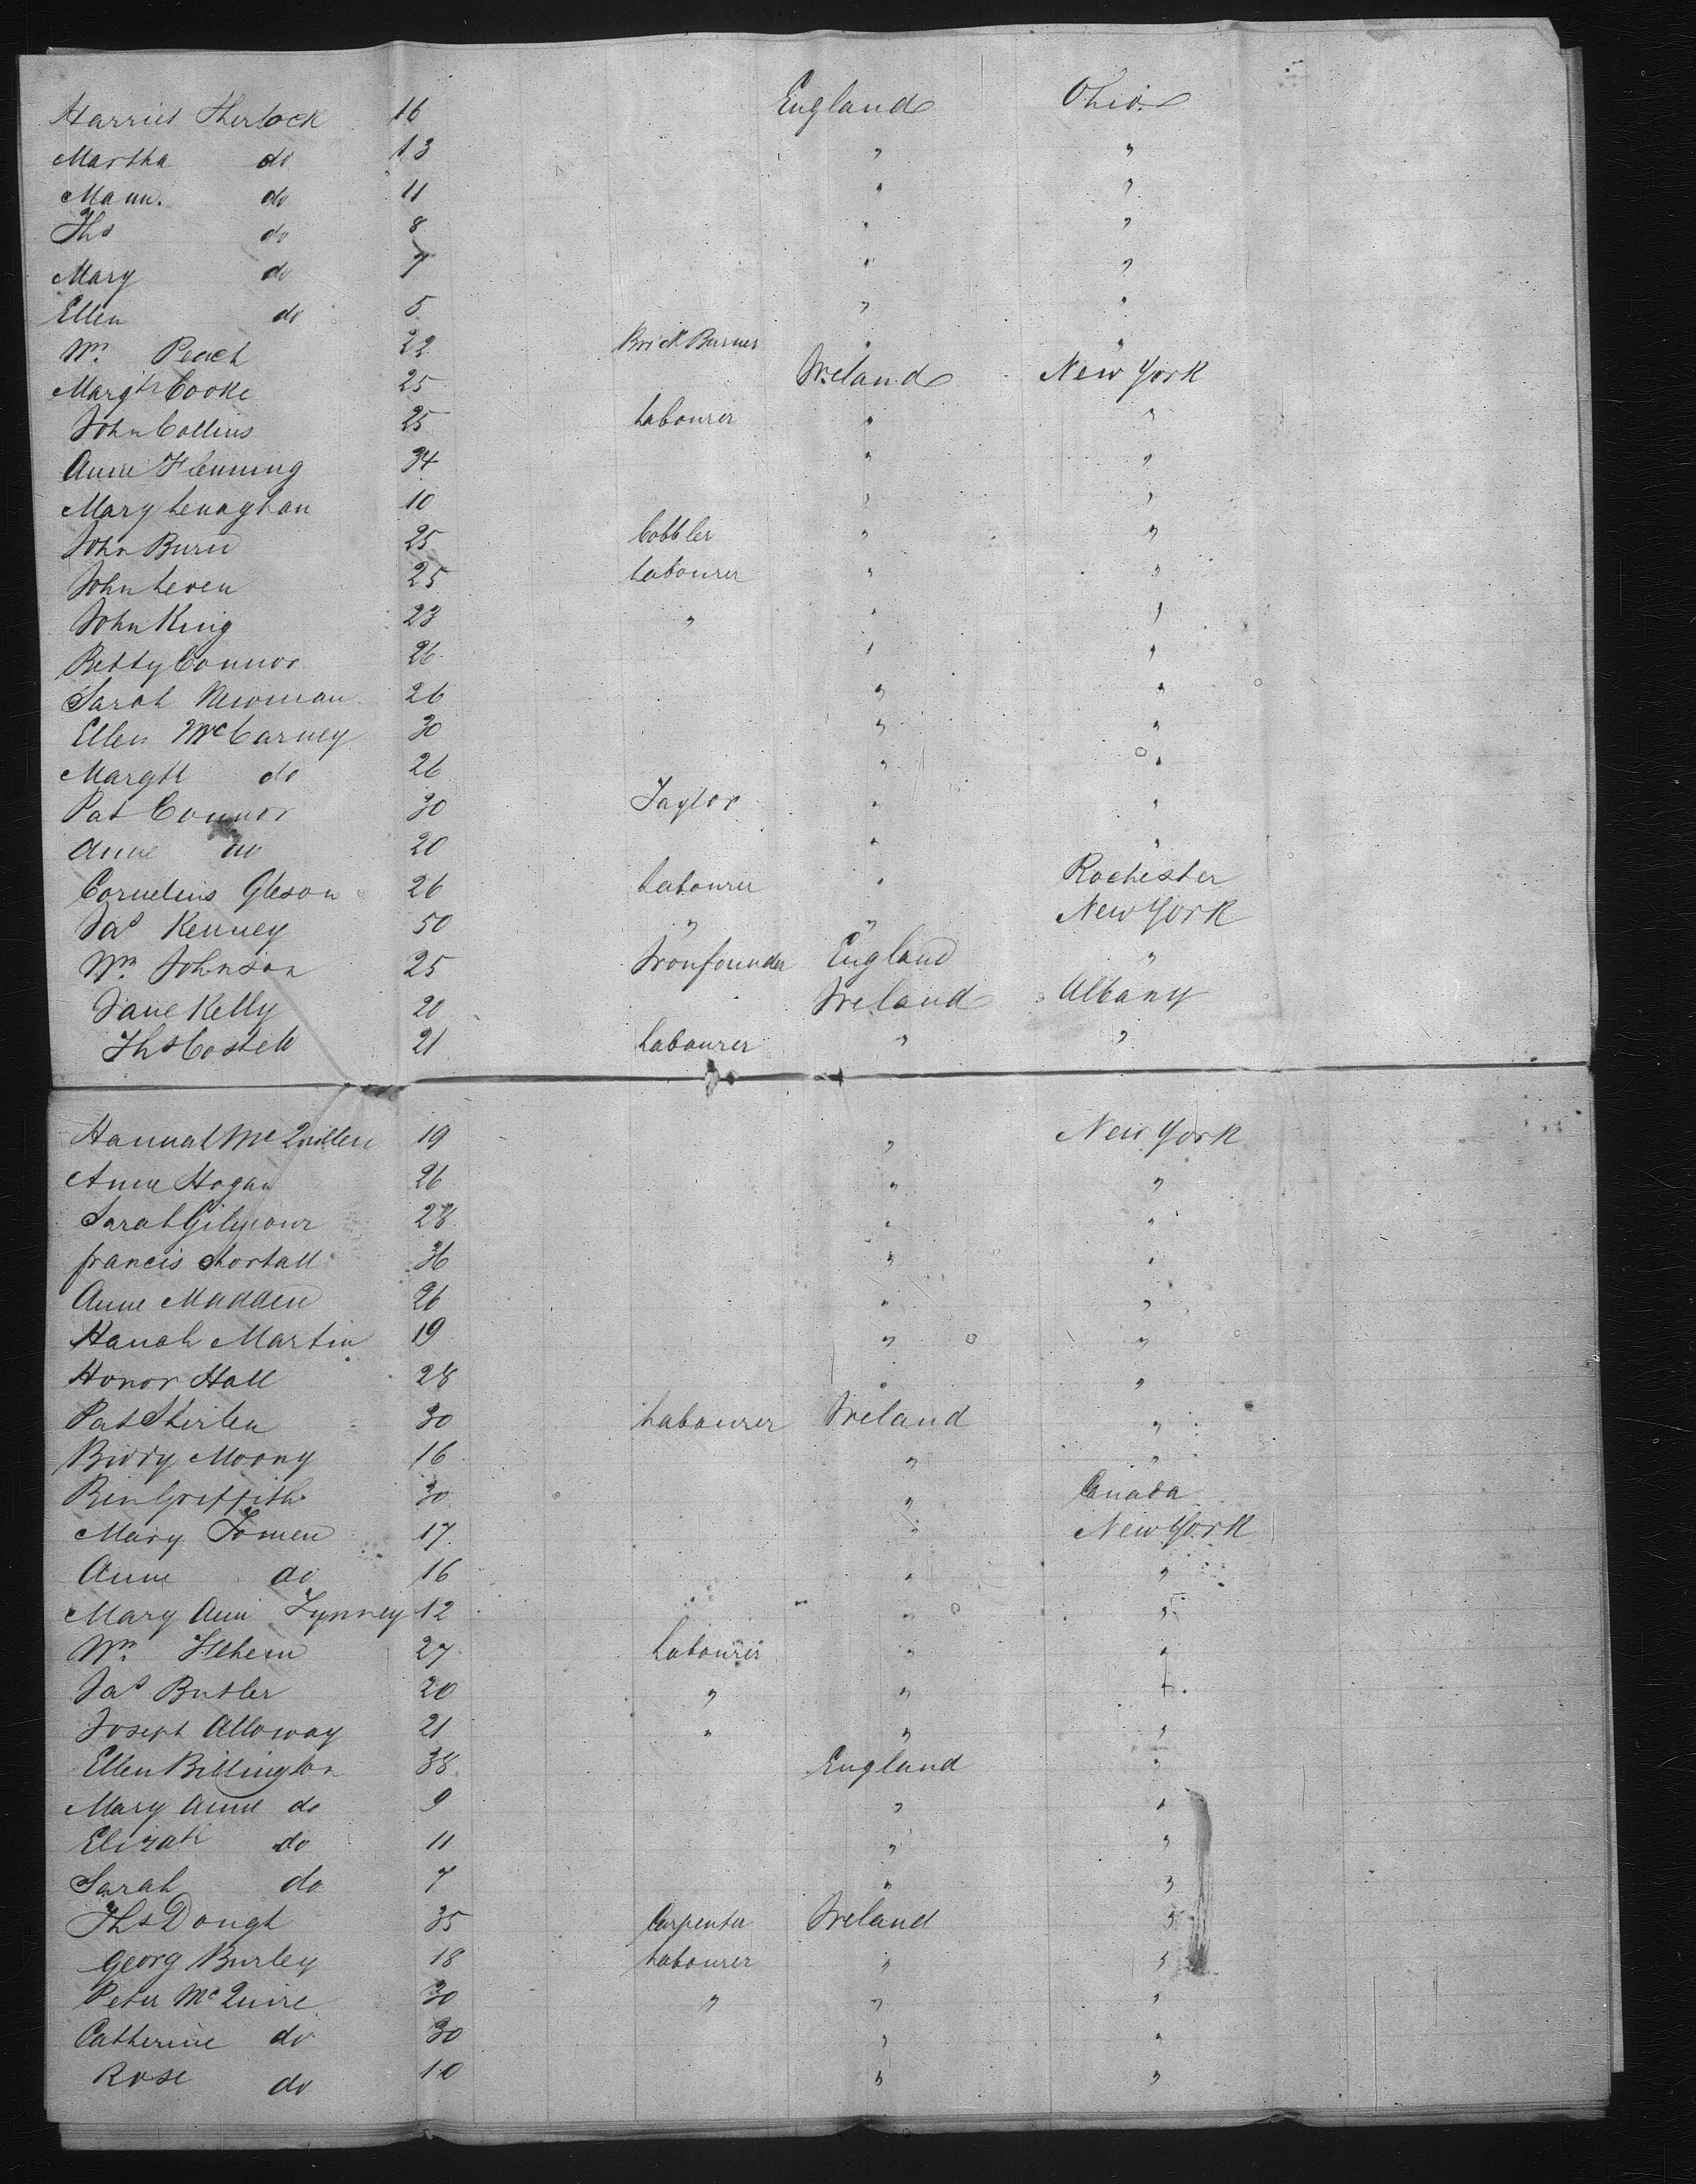 Harriet Sherlock 16 England Ohio
Martha do 13 " "
Mann. do 11 " "
Ths do 8 " "
Mary do 7 " "
Ellen do 5 " "
Wm. Peach 22 Brick Burner " "
Margt Cooke 25 Ireland New York
John Collins 25 Labourer " "
Anne Fleming 34 " "
Mary Lenaghan 10 " "
John Burn 25 Cobbler " "
John Leven 25 Labourer " "
John King 23 " " "
Betty Connor 26 " "
Sarah Newman 26 " "
Ellen McCarney 30 " "
Margtt do 26 " "
Pat Connor 30 Taylor " "
Anne do 20 " "
Cornelius Gleson 26 Labourer " Rochester
Jas Kenney 50 " " New York
Wm. Johnson 25 Ironfounder England "
Jane Kelly 20 Ireland Albany
Ths Costello 21 Labourer " "
Hannah McQuillen 19 " New York
Anne Hogan 26 " "
Sarah Gilmour 28 " "
francis Shortall 36 " "
Anne Madden 26 " "
Hanah Martin 19 " "
Honor Hall 28 " "
Pat 30 Labourer Ireland "
Biddy Moony 16 " "
Ben Griffith 30 " Canada
Mary Tomen 17 " New York
Anne do 16 " "
Mary Ann Tynney 12 " "
Wm. 27 Labourer " "
Jas Butler 20 " " "
Joseph Alloway 21 " " "
Ellen Billington 38 England "
Mary Anne do 9 " "
Elizath do 11 " "
Sarah do 7 " "
Ths Dough 35 Carpenter Ireland "
Georg Burley 18 Labourer " "
Peter McQuire 30 " " "
Catherine do 30 " "
Rose do 10 " "